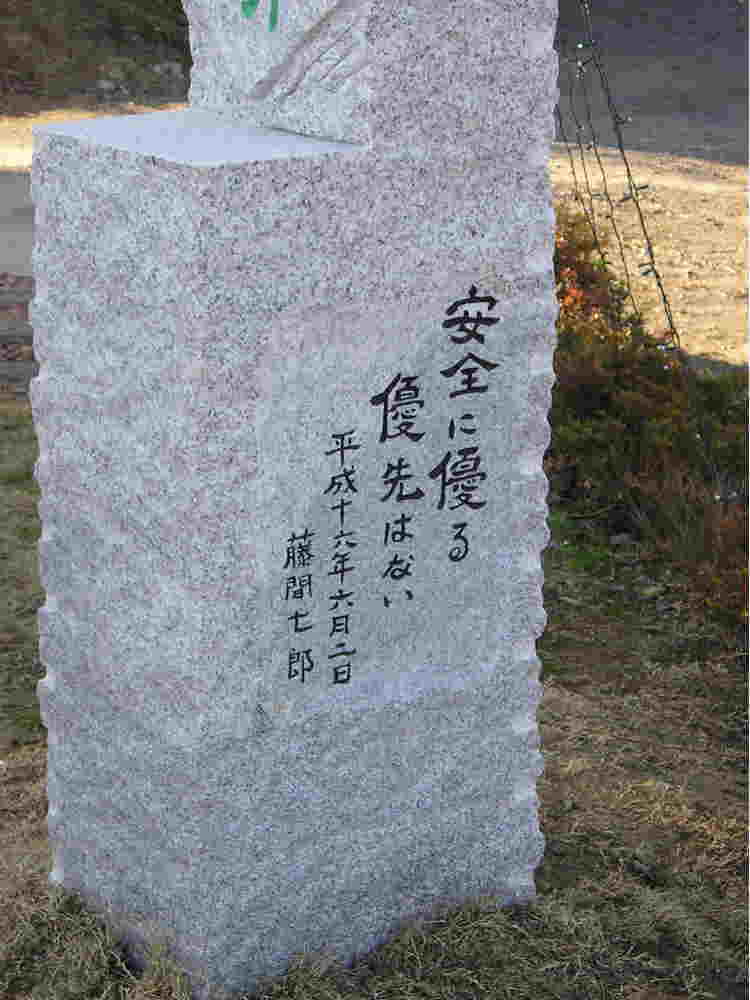 安全に優る
優先はない
平成十六年六月二日
藤間七郎